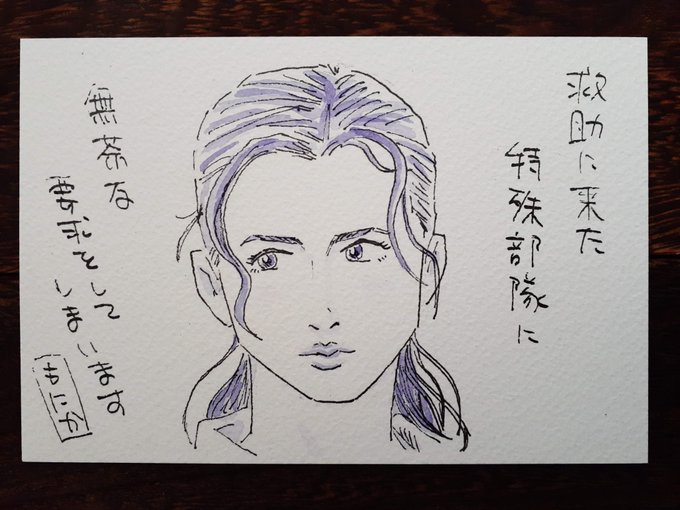 救助に来た
特殊部隊に
無茶な
要求をして
いまいます
もにか